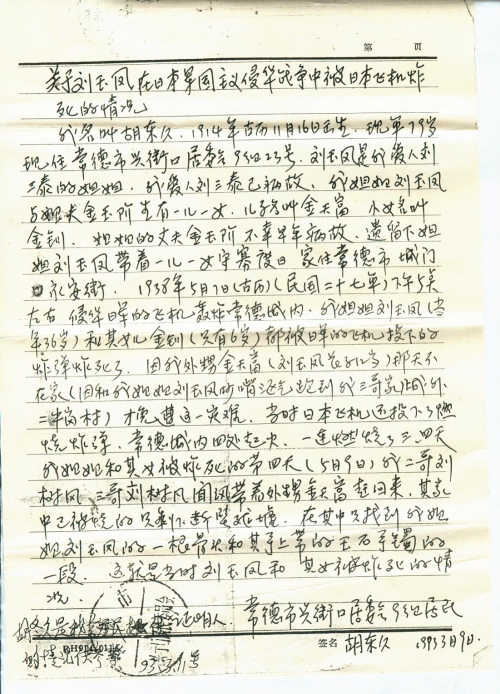 第 页
关于刘玉凤在日本军国主义侵华战争中被日本飞机炸
死的情况
我名叫胡东久，1914年古历11月16日出生，现年79岁
现住常德市兴街口居委会9组23号，刘玉凤是我爱人刘
三泰的姐姐，我爱人刘三泰已病故，我姐姐刘玉凤
与姐夫金玉阶生有一儿一女，儿子名叫金天富 小女名叫
金钏，姐姐的丈夫金玉阶不幸早年病故，遗留下姐
姐刘玉凤带着一儿一女守寡度日 家住常德市城门
永安街，1938年5月7日（古历）（民国二十七年）下午5点
左右 侵华日军的飞机轰炸常德城内，我姐姐刘玉凤（当
年36岁）和其女儿金钏（只有6岁）都被日军的飞机投下的
炸弹炸死了，因我外甥金天富（刘玉凤长子12岁）那天不
在家（因和我姐姐刘玉凤吵嘴还气跑到我三哥家）城外
二牛岗村）才免遭这一灾难，当时日本飞机还投下了燃
烧炸弹，常德城内四处起火，一连燃烧了三四天
我姐姐和其女被炸死的第四天（5月9日）我二哥刘
树风 三哥刘树凡闻风带着外甥金天富赶回来，其家
中已被烧的只剩下断壁残墟，在其中只找到我姐
姐刘玉凤的一根骨头和其手上带的玉石手镯的
一段，这就是当时刘玉凤和其女被炸死的情
况。
证明人，常德市兴街口居委会9组居民
签名 胡东久 1993年3月9日.
胡东久是我
93.3.9号